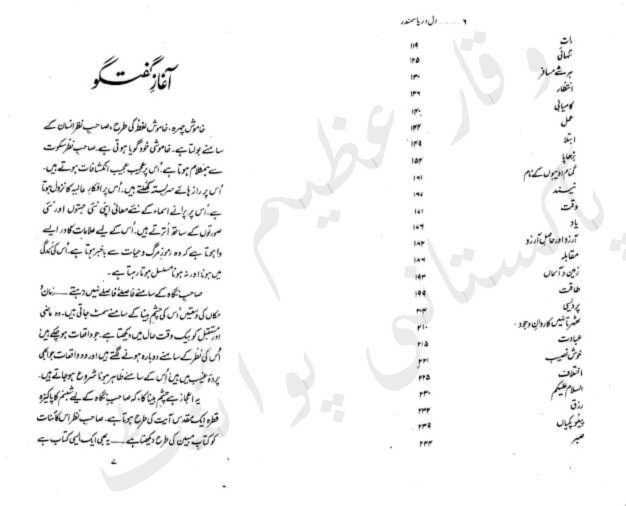 ۶ ........ دل دریا سمندر
رات ۱۱۹
تنہائی ۱۲۵
ہر شے مسافر ۱۳۰
انتظار ۱۳۶
کامیابی ۱۴۰
عمل ۱۴۴
ابتلا ۱۴۹
بڑھاپا ۱۵۴
گمنام ادیبوں کے نام ۱۶۱
نیند ۱۶۷
وقت ۱۷۱
یاد ۱۷۶
آرزو اور حاصلِ آرزو ۱۸۲
مقابلہ ۱۸۶
زمین و آسماں ۱۹۳
طاقت ۱۹۹
پردیسی ۲۰۴
کاروانِ وجود ۲۱۰
عبادت ۲۱۵
خوش نصیب ۲۲۱
اختلاف ۲۲۵
السلام علیکم ۲۳۰
رزق ۲۳۴
۲۳۹
صبر ۲۴۴
آغازِ گفتگو
خاموش چہرہ، خاموش لفظ کی طرح، صاحبِ نظر انسان کے
سامنے بولتا ہے۔ خاموشی خود گویا ہوتی ہے۔ صاحبِ نظر سکوت
سے ہمکلام ہوتا ہے۔ اُس پر عجیب عجیب انکشافات ہوتے ہیں۔
اُس پر راز ہائے سربستہ کھلتے ہیں۔ اُس پر افکارِ عالیہ کا نزول ہوتا
ہے۔ اُس پر پرانے اسماء کے نئے معانی اپنی نئی جہتوں اور نئی
صورتوں کے ساتھ اُترتے ہیں۔ اُس کے لیے علامات کا در ایسے
وا ہوتا ہے کہ وہ رموزِ مرگ و حیات سے باخبر ہوتا ہے۔ اُس کی زندگی
میں ہونا اور نہ ہونا مسلسل ہوتا رہتا ہے۔
صاحبِ نگاہ کے سامنے فاصلے فاصلے نہیں رہتے ...... زمان و
مکاں کی وُسعتیں اُس کی چشمِ بینا کے سامنے سمٹ جاتی ہیں۔ وہ ماضی
اور مستقبل کو بیک وقت حال میں دیکھتا ہے۔ جو واقعات ہو چکے ہیں
اُس کی نظر کے سامنے دوبارہ ہونے لگتے ہیں اور وہ واقعات جو ابھی
پردۂ غیب میں ہیں اُس کے سامنے ظاہر ہونا شروع ہو جاتے ہیں۔
یہ اعجاز ہے چشمِ بینا کا، کہ صاحبِ نگاہ کے لیے شبنم کا پاکیزہ
قطرہ ایک مقدس آیت کی طرح ہوتا ہے۔ صاحبِ نظر اس کائنات
کو کتابِ مبین کی طرح دیکھتا ہے ...... یہ بھی ایک ایسی کتاب ہے
۷
وقار عظیم
پاکستانی پوائنٹ